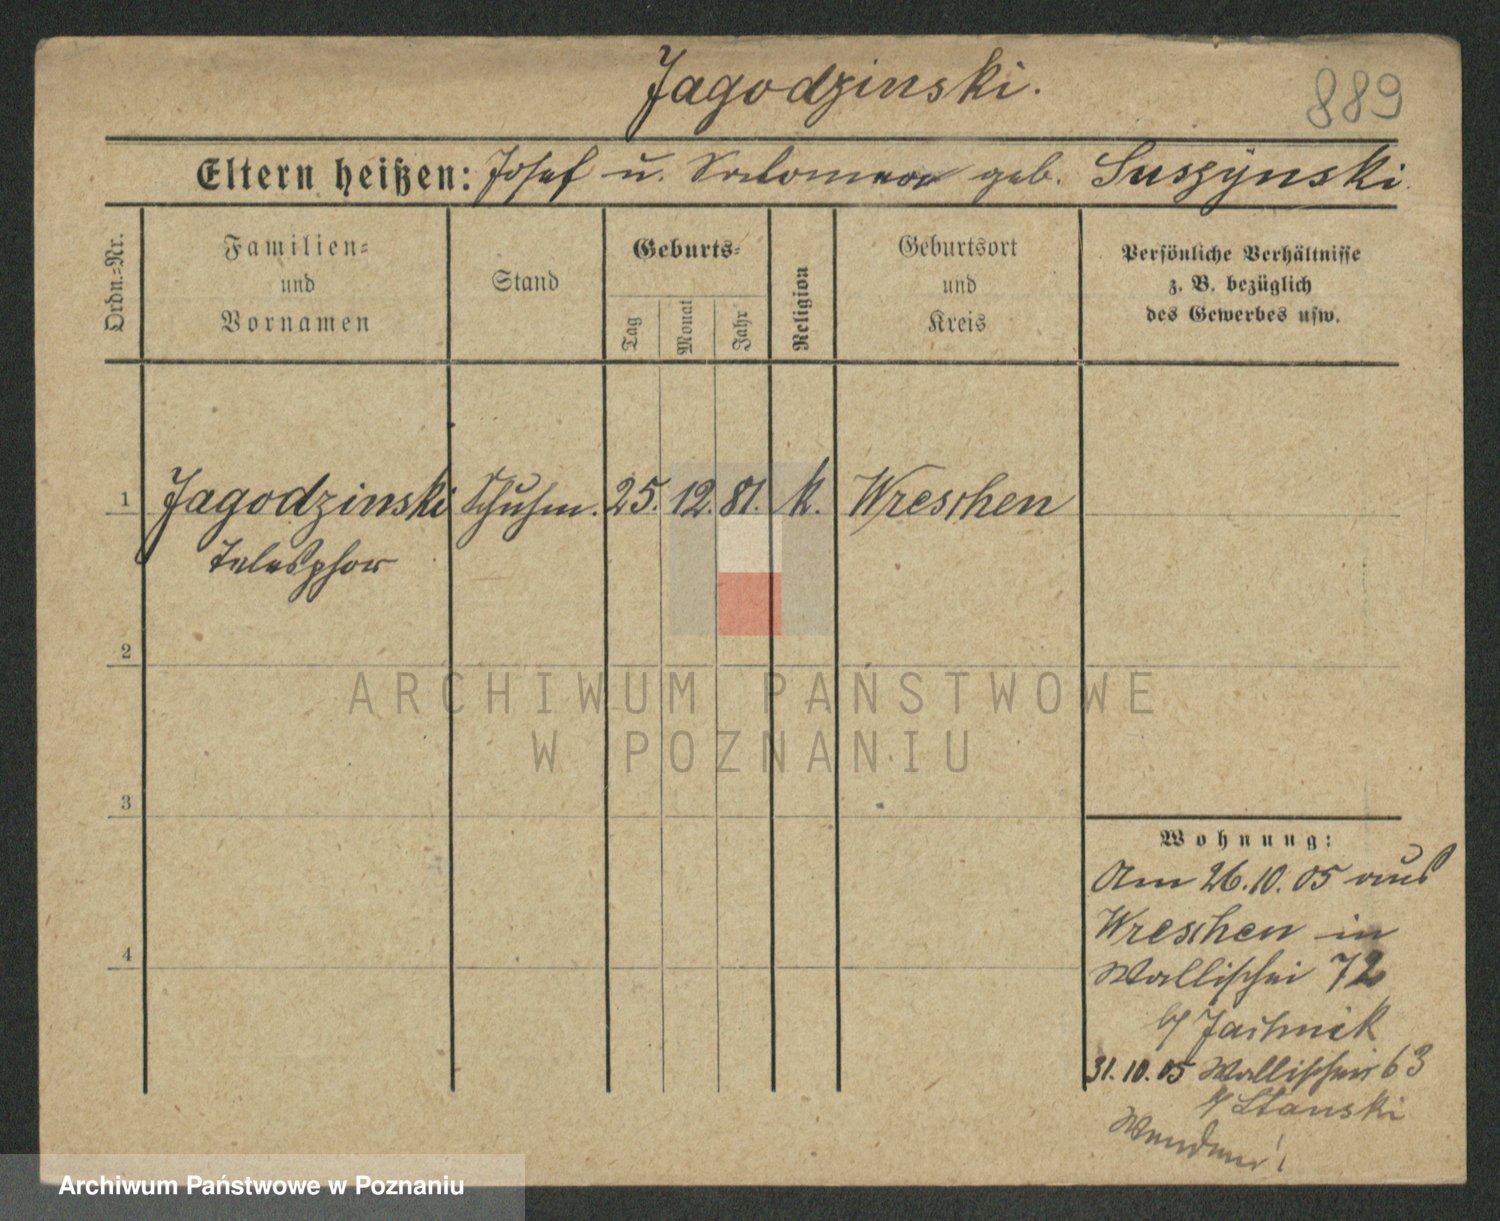 Jagodzinski.
889
Eltern heißen: Josef u. Salomea geb. Suszynski.
Ordn.-Nr.
Familien-
und
Vornamen
Stand
Geburts-
Tag
Monat
Jahr
Religion
Geburtsort
und
Kreis
Persönliche Verhältnisse
z. B. bezüglich
des Gewerbes usw.
1 Jagodzinski Schuhm. 25. 12. 81. k. Wreschen
Telesphor
2
ARCHIWUM PAŃSTWOWE
W POZNANIU
3
4
Wohnung:
Am 26.10.05 aus
Wreschen in
Wallischei 72
b/ Jachnik
31.10.05 Wallischei 63
b/ Stanski
Wenden!
Archiwum Państwowe w Poznaniu